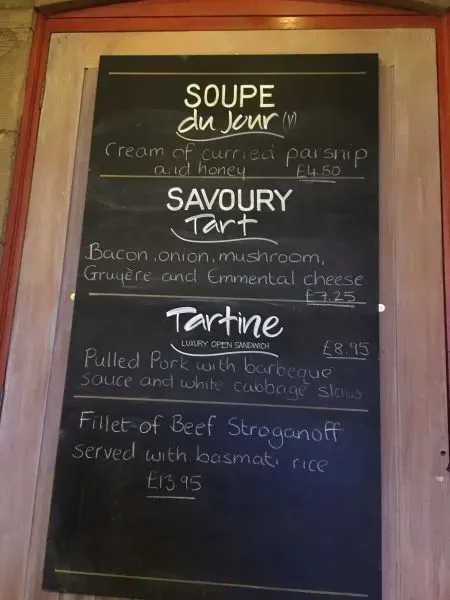 SOUPE
du Jour (V)
Cream of curried parsnip
and honey £4.50
SAVOURY
Tart
Bacon, onion, mushroom,
Gruyère and Emmental cheese
£7.25
Tartine
LUXURY OPEN SANDWICH £8.95
Pulled Pork with barbeque
sauce and white cabbage slaw
Fillet of Beef Stroganoff
served with basmati rice
£13.95